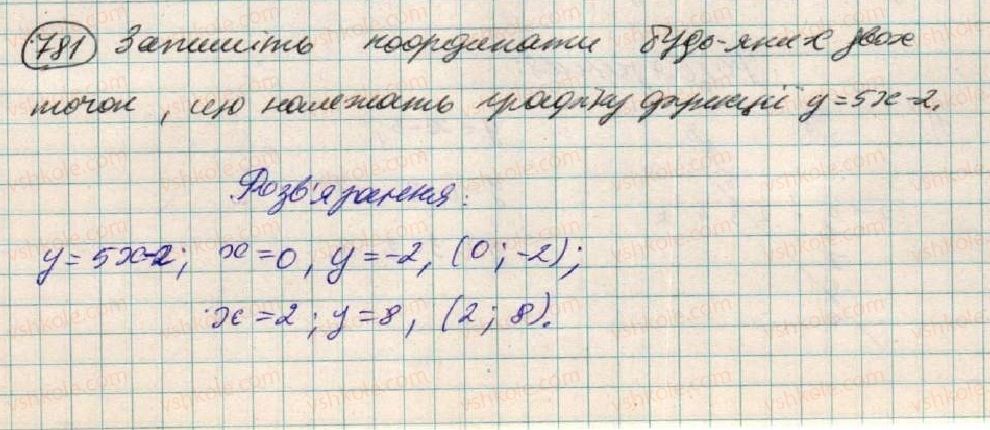 781 Запишіть координати будь-яких двох
точок, що належать графіку функції y=5x-2.
Розв'язання:
y=5x-2; x=0, y=-2, (0;-2);
x=2; y=8, (2; 8).